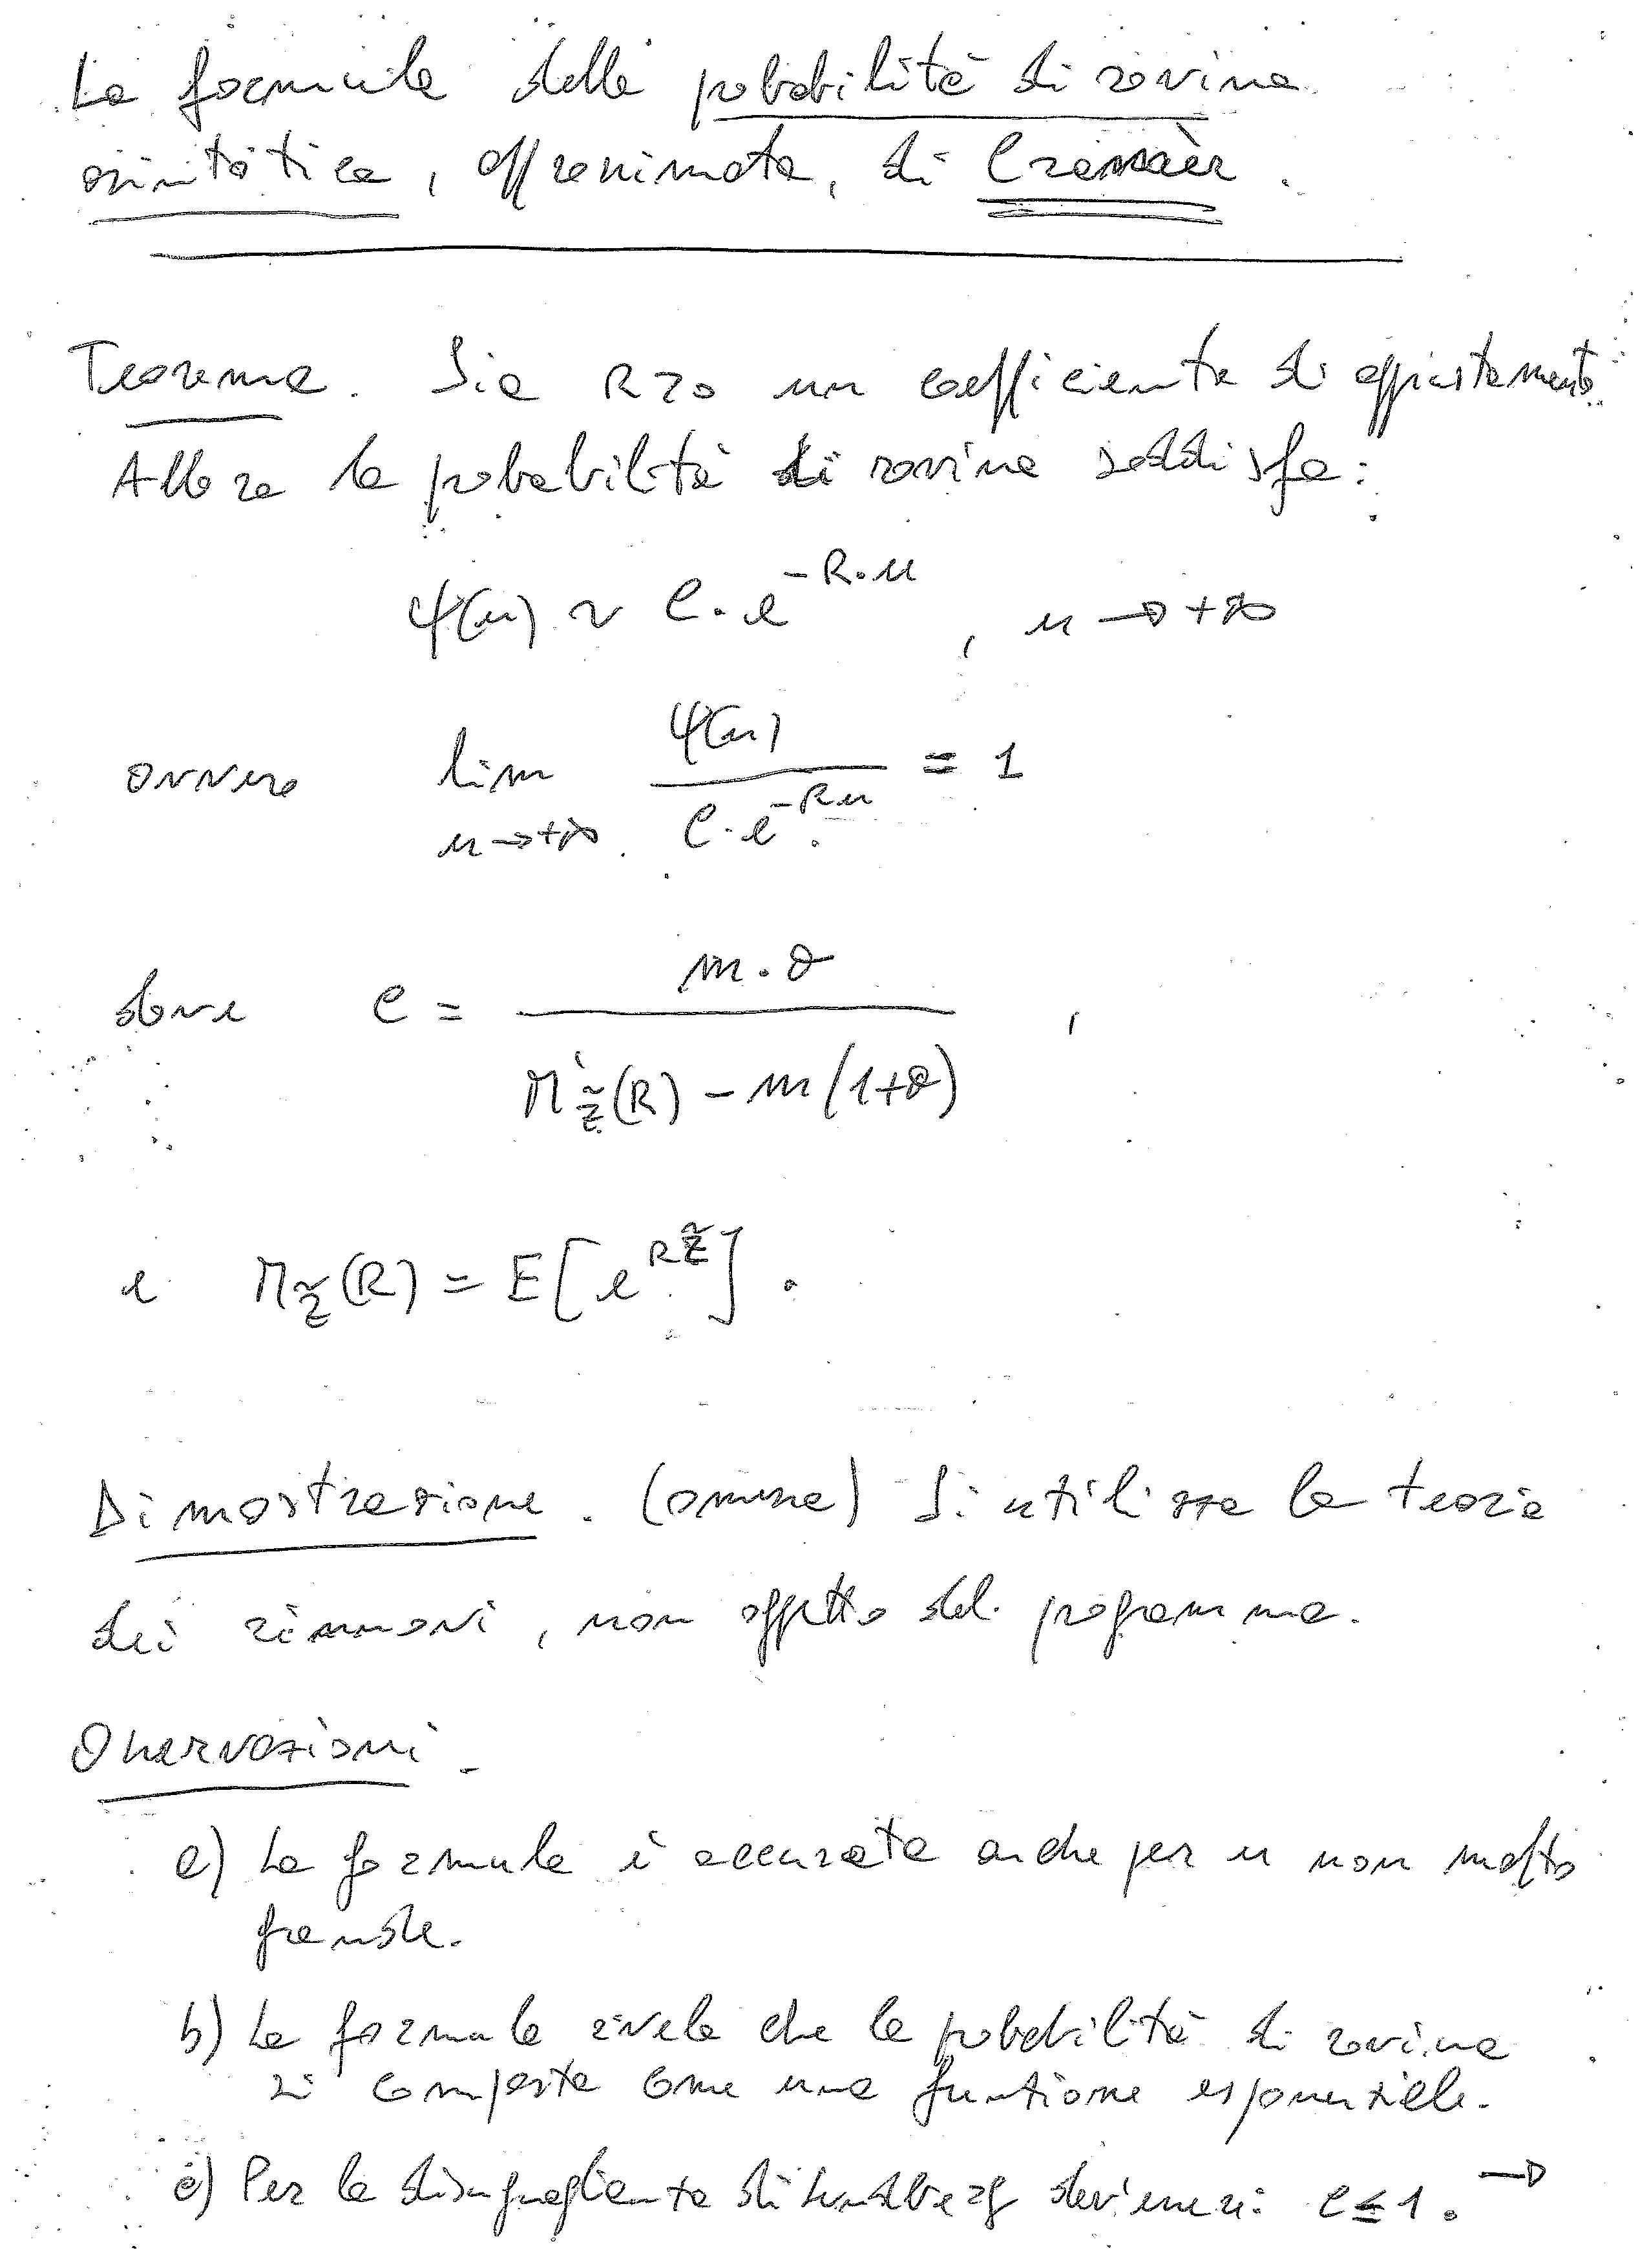 La formula della probabilità di rovina
asintotica, approssimata, di Cramèr.
Teorema. Sia R>0 un coefficiente di aggiustamento.
Allora la probabilità di rovina soddisfa:
ψ(u) ~ C·e^{-R·u} , u → +∞
ovvero lim_{u→+∞} ψ(u) / (C·e^{-Ru}) = 1
dove C = m·θ / (M'_{Z̃}(R) - m(1+θ)) ,
e M_{Z̃}(R) = E[e^{RZ̃}].
Dimostrazione. (omessa) Si utilizza la teoria
dei rinnovi, non oggetto del programma.
Osservazioni.
a) La formula è accurata anche per u non molto
grande.
b) La formula rivela che la probabilità di rovina
si comporta come una funzione esponenziale.
c) Per la disuguaglianza di Lundberg dev'essere: C≤1. →